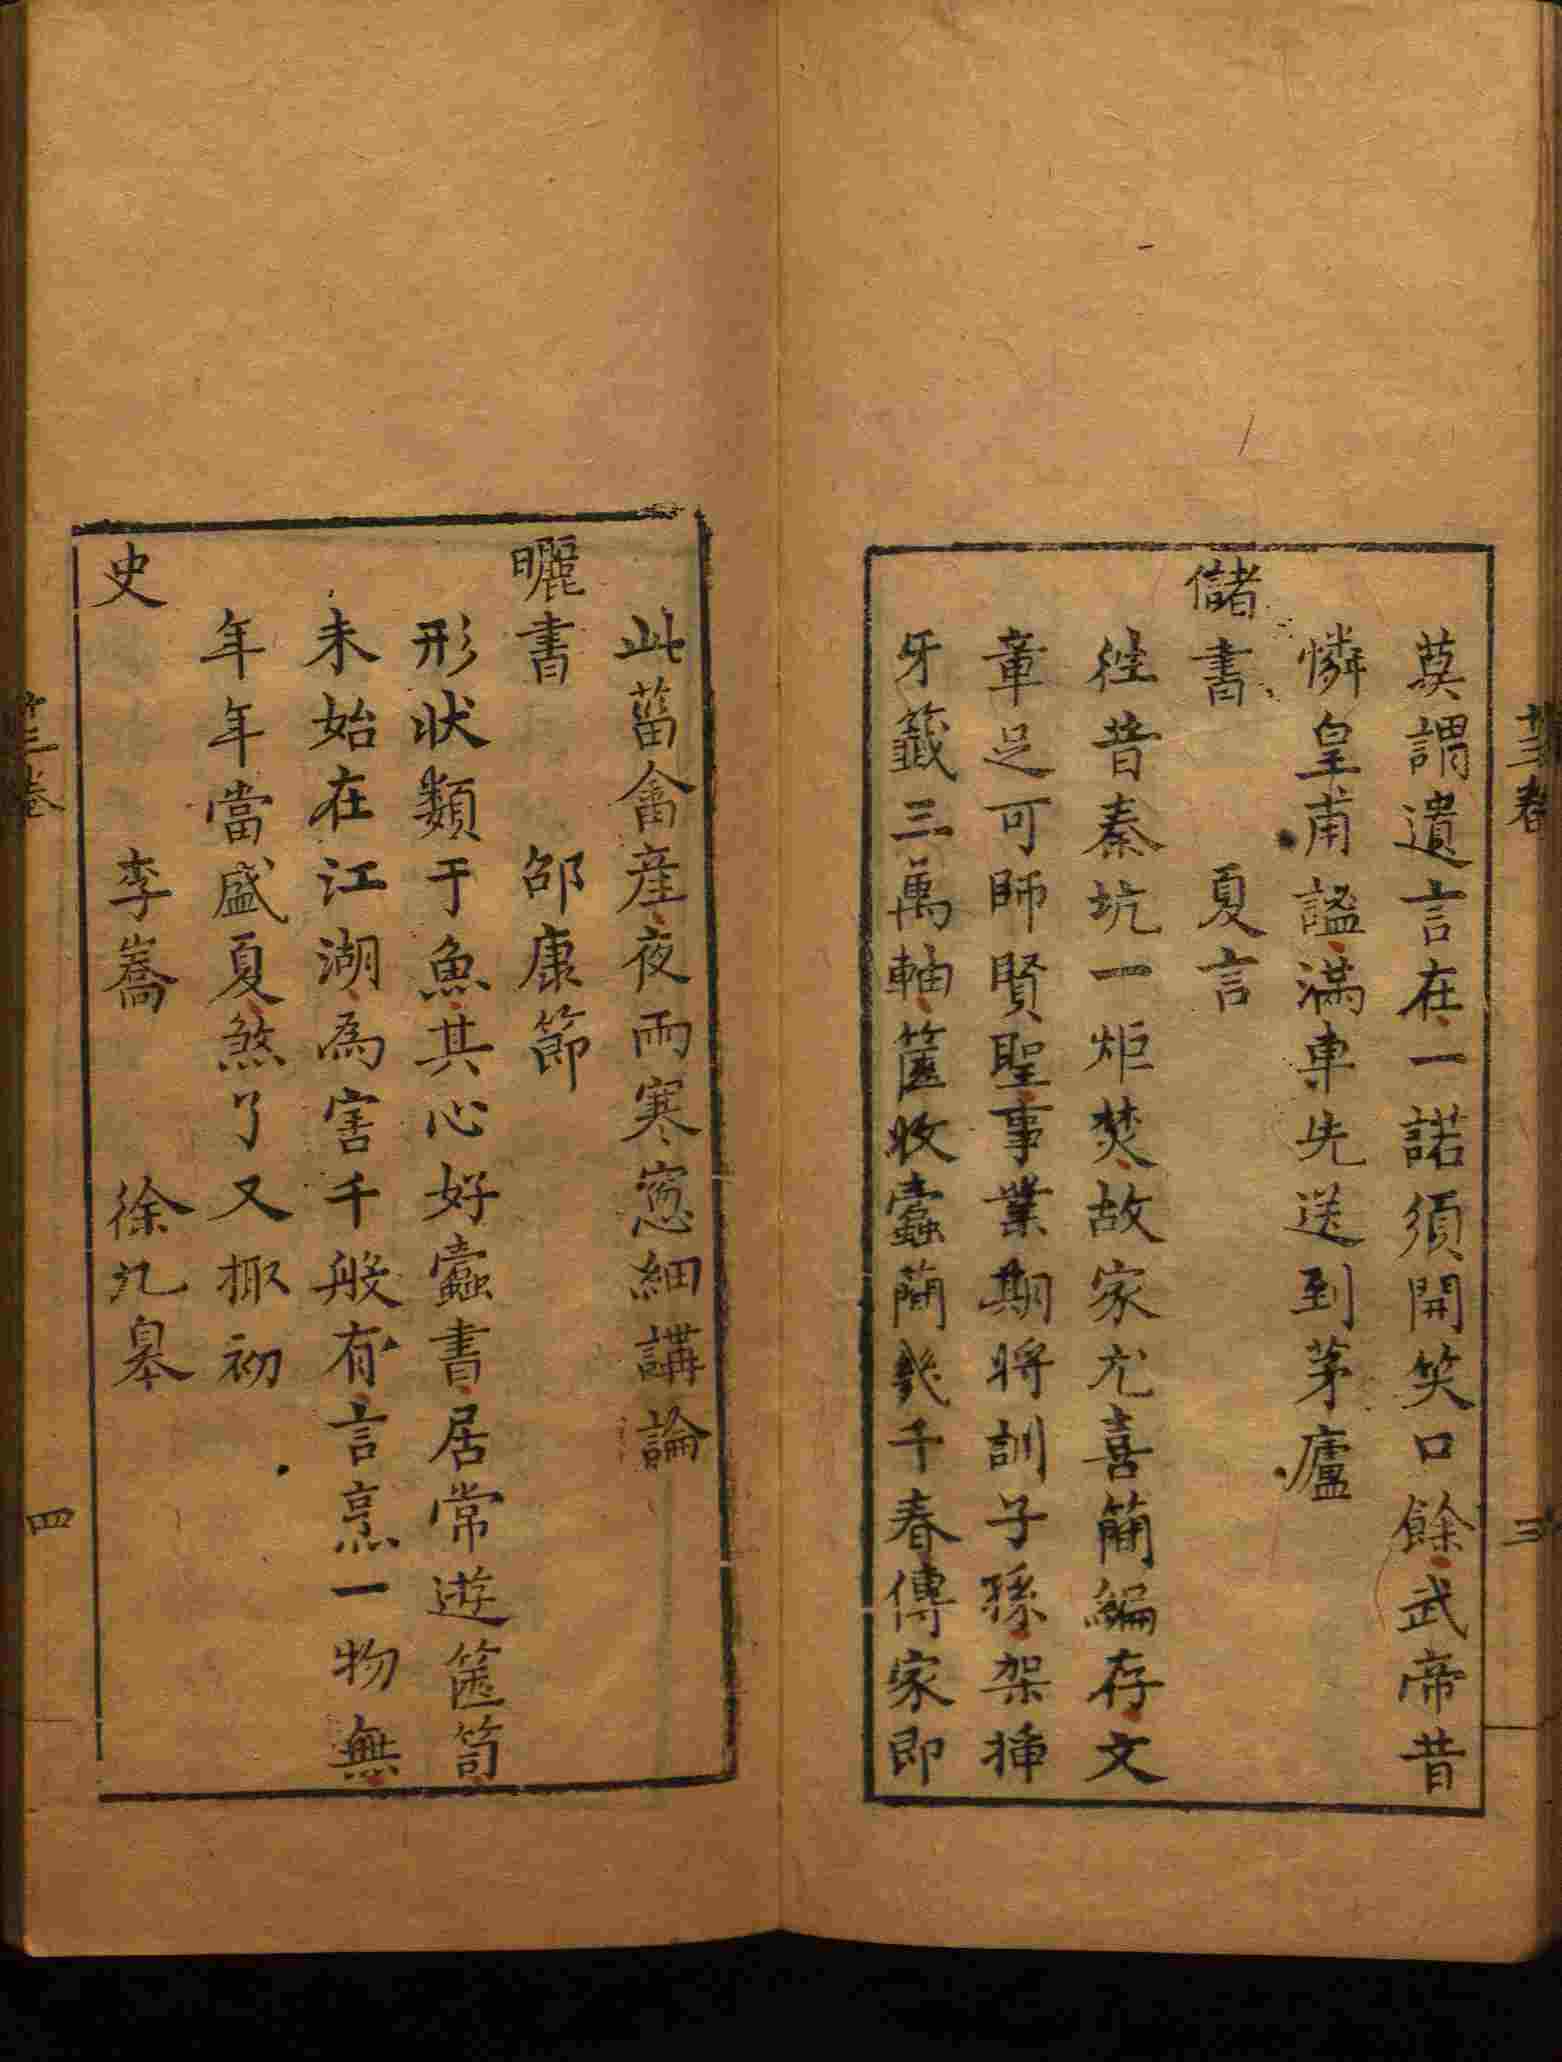 莫謂遺言在一諾須開笑口餘武帝昔
憐皇甫謐滿車先送到茅廬
儲書 夏言
徃昔秦坑一炬焚故家尤喜簡編存文
章足可師賢聖事業期將訓子孫架揷
牙籤三萬軸篋收蠹蕳幾千春傳家即
此菑畬産夜雨寒窓細講論
曬書 邵康節
形狀類于魚其心好蠹書居常遊篋笥
未始在江湖為害千般有言烹一物無
年年當盛夏煞了又掫初
史 李嶠 徐九皋
卷
三
卷
四